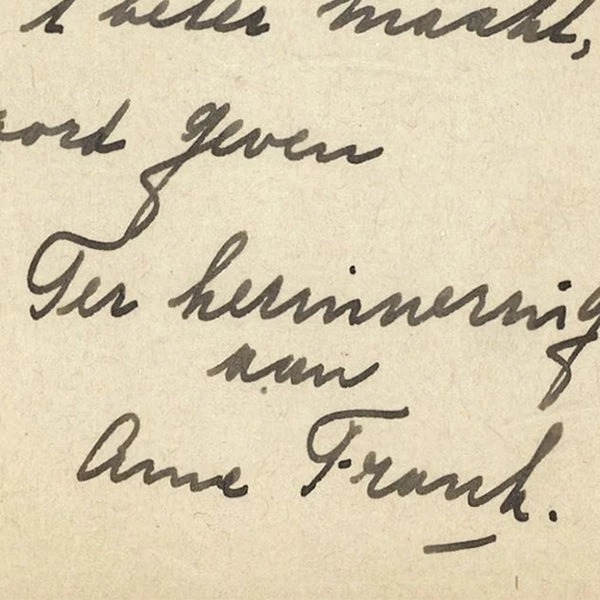 't beter maakt,
oord geven
Ter herinnering
aan
Anne Frank.